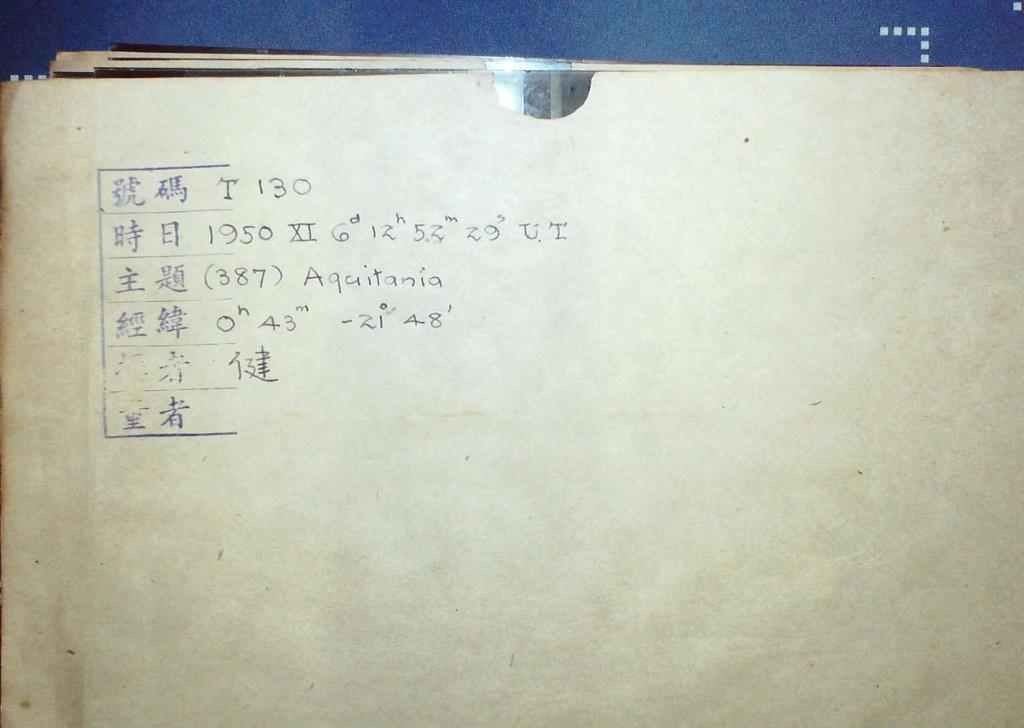 號碼 T 130
時日 1950 XI 6ᵈ 12ʰ 52ᵐ 29ˢ U.T.
主題 (387) Aquitania
經緯 0ʰ 43ᵐ -21° 48'
者 健
量者